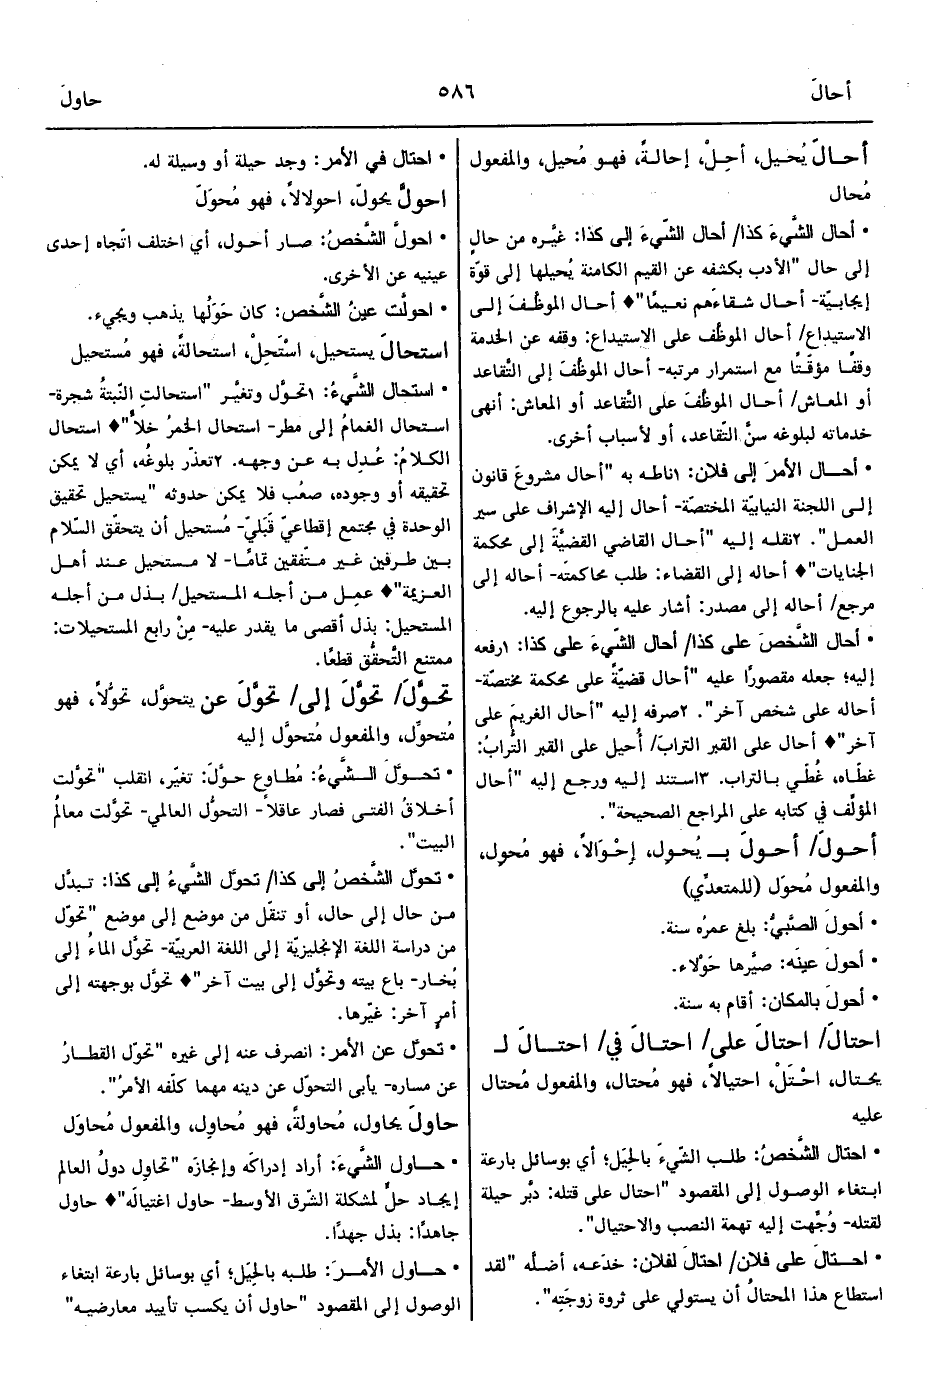 أحالَ
٥٨٦
حاولَ
أحـالَ يُحيل، أحِلْ، إحالةً، فهـو مُحيل، والمفعول
مُحال
• أحال الشَّيءَ كذا/ أحال الشّيءَ إلى كذا: غيَّره من حالٍ
إلى حال "الأدب بكشفه عن القيم الكامنة يُحيلها إلى قوّة
إيجابيّة- أحـال شـقاءَهم نعـيمًا"♦ أحـال الموظَّفَ إلـى
الاستيداع/ أحال الموظَّف على الاستيداع: وقفه عن الخدمة
وقفًـا مؤقّـتًا مع استمرار مرتبه- أحال الموظَّفَ إلى التَّقاعد
أو المعـاش/ أحـال الموظَّفَ على التَّقاعد أو المعاش: أنهى
خدماته لبلوغه سنَّ التّقاعد، أو لأسباب أخرى.
• أحـال الأمرَ إلى فلان: ١ناطـه به "أحال مشروعَ قانون
إلـى اللجنة النيابيّة المختصّة- أحال إليه الإشراف على سير
العمـل". ٢نقلـه إليه "أحـال القاضي القضيَّةَ إلى محكمة
الجنايات"♦ أحاله إلى القضاء: طلب محاكمتَه- أحاله إلى
مرجع/ أحاله إلى مصدر: أشار عليه بالرجوع إليه.
• أحال الشَّخصَ على كذا/ أحال الشّيءَ على كذا: ١رفعه
إليه؛ جعله مقصورًا عليه "أحال قضيّةً على محكمة مختصّة-
أحاله على شخص آخر". ٢صرفه إليه "أحال الغريمَ على
آخر"♦ أحال على القبر الترابَ/ أُحيل على القبر التُّرابُ:
غطّـاه، غُطِّي بـالتراب. ٣استند إليه ورجع إليه "أحال
المؤلِّف في كتابه على المراجع الصحيحة".
أحـولَ/ أحـولَ بـ يُحول، إحْوَالاً، فهو مُحوِل،
والمفعول مُحوَل (للمتعدِّي)
• أحولَ الصَّبيُّ: بلغ عمرُه سنة.
• أحولَ عينَه: صيَّرها حَوْلاء.
• أحولَ بالمكان: أقام به سنة.
احتالَ/ احتالَ على/ احتـالَ في/ احتـالَ لـ
يحتال، احْتَلْ، احتيالاً، فهو مُحتال، والمفعول مُحتال
عليه
• احتال الشَّخصُ: طلـب الشّيءَ بالحِيَل؛ أي بوسائل بارعة
ابـتغاء الوصـول إلى المقصود "احتال على قتله: دبَّر حيلة
لقتله- وُجِّهت إليه تهمة النصب والاحتيال".
• احـتالَ على فلان/ احتال لفلان: خدَعـه، أضلَّه "لقد
استطاع هذا المحتالُ أن يستولي على ثروة زوجَتِه".
• احتال في الأمر: وجد حيلة أو وسيلة له.
احولَّ يحولّ، احوِلالاً، فهو مُحوَلّ
• احولَّ الشَّخصُ: صـار أحـول، أي اختلف اتّجاه إحدى
عينيه عن الأخرى.
• احولَّت عينُ الشَّخص: كان حَوَلُها يذهب ويجيء.
استحالَ يستحيل، اسْتَحِلْ، استحالةً، فهو مُستحيل
• استحال الشَّيءُ: ١تحوَّل وتغيَّر "استحالتِ النّبتةُ شجرة-
اسـتحال الغمامُ إلى مطر- استحال الخمرُ خلاًّ"♦ استحال
الكـلامُ: عُـدِل به عـن وجهـه. ٢تعذّر بلوغُه، أي لا يمكن
تحقيقه أو وجوده، صعُب فلا يمكن حدوثه "يستحيل تحقيق
الوحدة في مجتمع إقطاعيّ قَبَليّ- مُستحيل أن يتحقّق السَّلام
بـين طـرفين غـير مـتّفقين تمامًـا- لا مستحيل عنـد أهـل
العـزيمة"♦ عمِـل مـن أجلـه المـستحيل/ بـذل مـن أجلـه
المستحيل: بذل أقصى ما يقدر عليه- مِنْ رابع المستحيلات:
ممتنع التَّحقُّق قطعًا.
تحوَّلَ/ تحوَّلَ إلى/ تحوَّلَ عن يتحوَّل، تحوُّلاً، فهو
مُتحوِّل، والمفعول مُتحوَّل إليه
• تحـولّ الـشَّيءُ: مُطاوع حـوَّلَ: تغيَّر، انقلب "تحوَّلت
أخـلاقُ الفتـى فصار عاقلاً- التحوُّل العالمي- تحوَّلت معالمُ
البيت".
• تحوّل الشَّخصُ إلى كذا/ تحولّ الشَّيءُ إلى كذا: تـبدَّل
مـن حال إلى حال، أو تنقّل من موضع إلى موضع "تحوّل
من دراسة اللغة الإنجليزيّة إلى اللغة العربيّة- تحوَّل الماءُ إلى
بُخـار- باع بيته وتحوَّل إلى بيت آخر"♦ تحوَّل بوجهته إلى
أمرٍ آخر: غيَّرها.
• تحوّل عن الأمر: انصرف عنه إلى غيره "تحوّل القطـارُ
عن مساره- يأبى التحوّل عن دينه مهما كلّفه الأمرُ".
حاولَ يحاول، مُحاولةً، فهو مُحاوِل، والمفعول مُحاوَل
• حـاول الشَّيءَ: أراد إدراكَه وإنجازَه "تحاوِل دولُ العالم
إيجـاد حلٍّ لمشكلة الشّرق الأوسط- حاول اغتيالَه"♦ حاول
جاهدًا: بذل جهدًا.
• حـاول الأمـرَ: طلبه بالحِيَل؛ أي بوسائل بارعة ابتغاء
الوصول إلى المقصود "حاول أن يكسب تأييد معارضيـه"